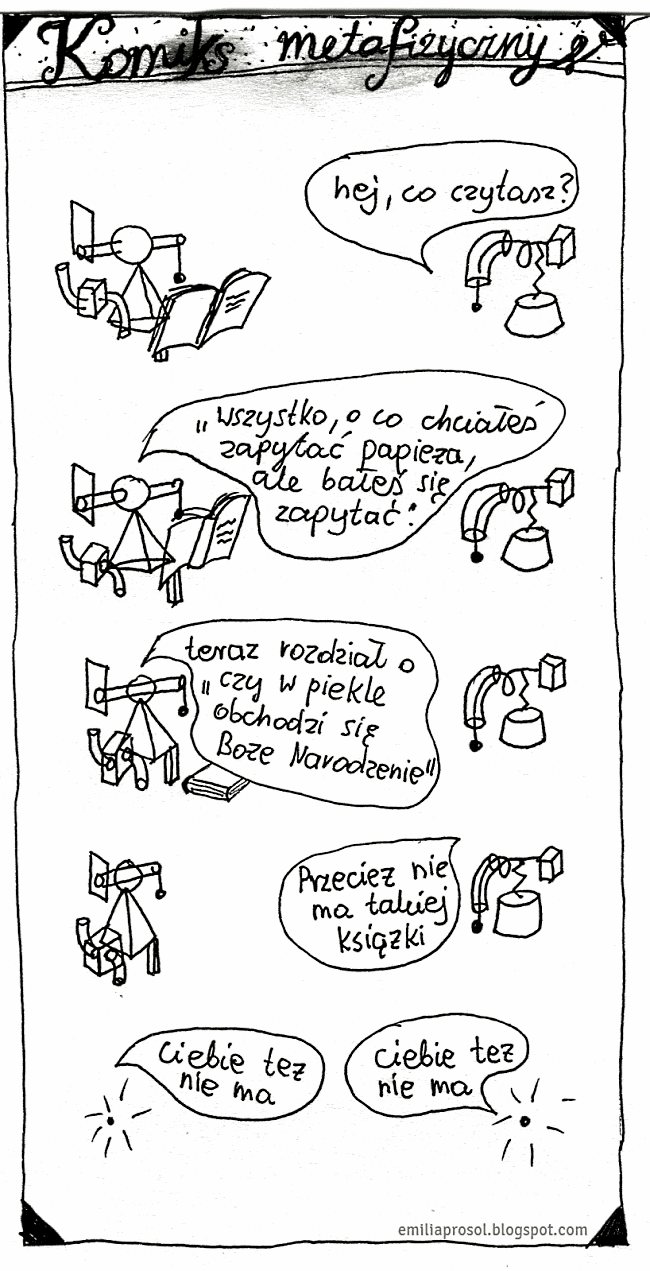 Komiks metafizyczny
hej, co czytasz?
„wszystko, o co chciałeś
zapytać papieża,
ale bałeś się
zapytać".
teraz rozdział o
„czy w piekle
obchodzi się
Boże Narodzenie"
Przecież nie
ma takiej
książki
ciebie też
nie ma
ciebie też
nie ma
emiliaprosol.blogspot.com